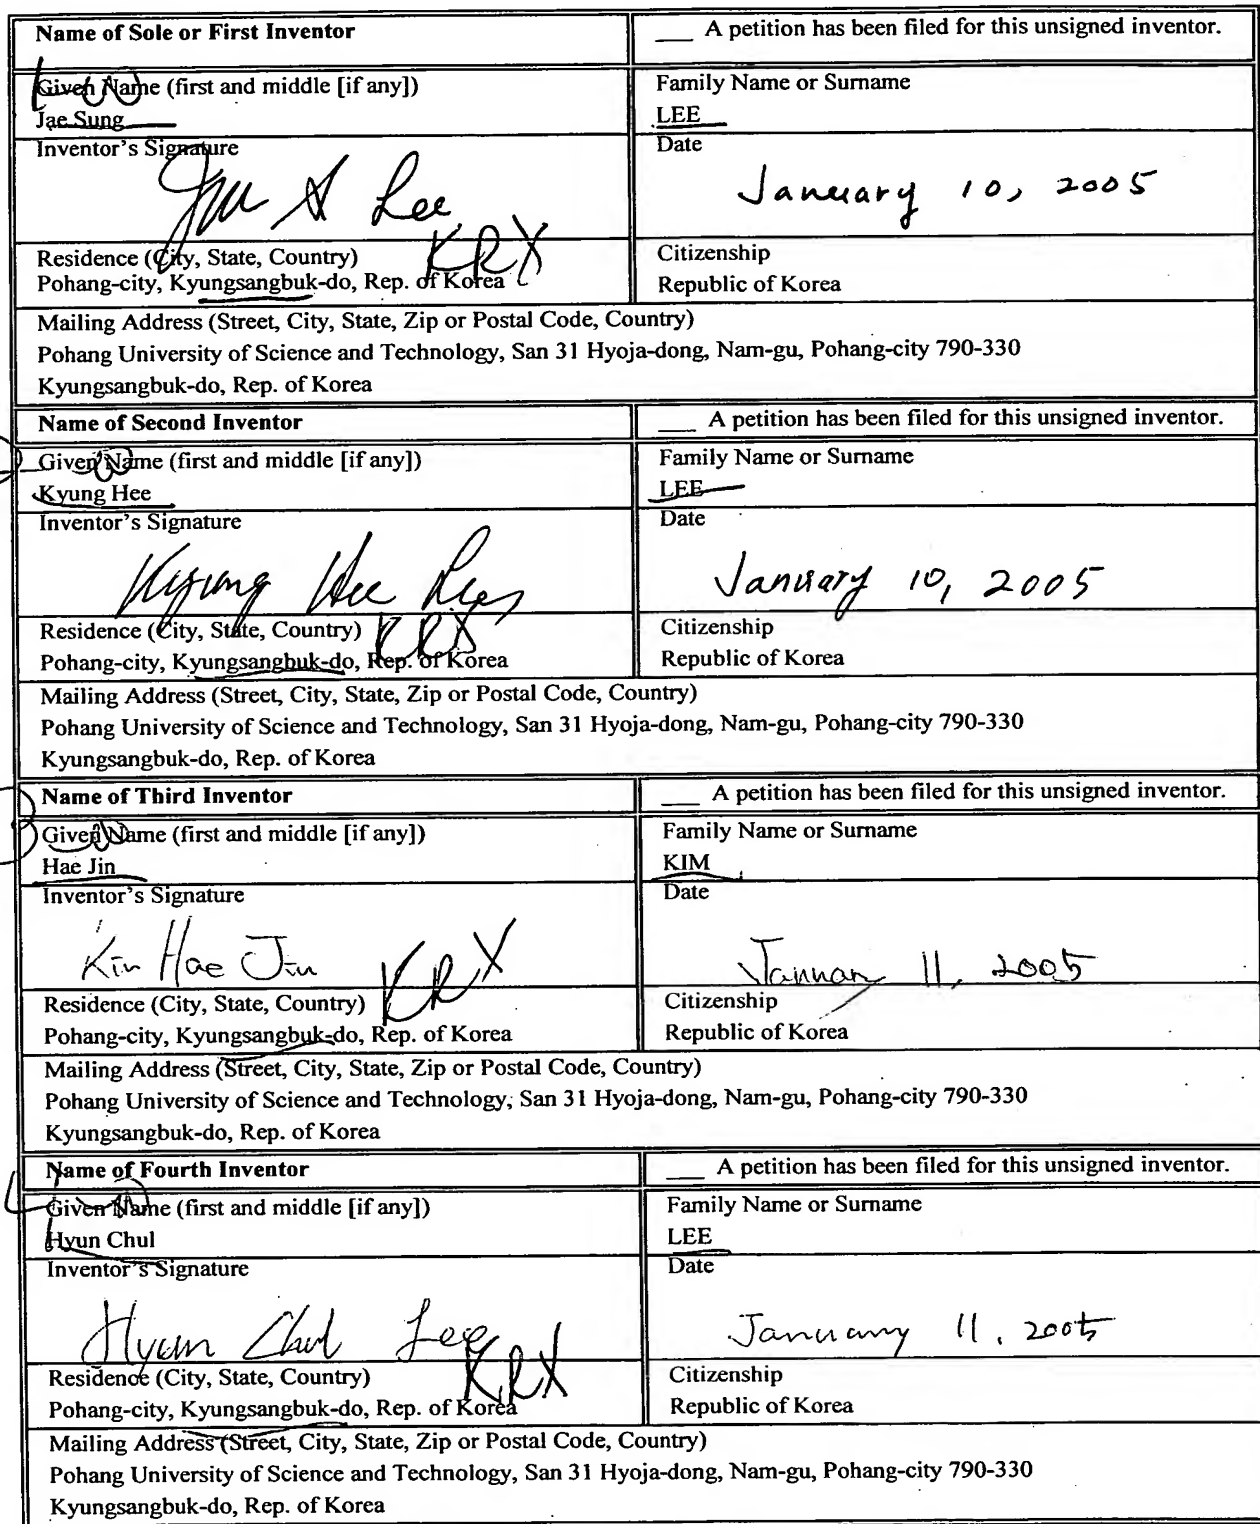 Name of Sole or First Inventor
___ A petition has been filed for this unsigned inventor.
Given Name (first and middle [if any])
Family Name or Surname
Jae Sung
LEE
Inventor's Signature
Date
Jae S Lee
January 10, 2005
KRX
Residence (City, State, Country)
Citizenship
Pohang-city, Kyungsangbuk-do, Rep. of Korea
Republic of Korea
Mailing Address (Street, City, State, Zip or Postal Code, Country)
Pohang University of Science and Technology, San 31 Hyoja-dong, Nam-gu, Pohang-city 790-330
Kyungsangbuk-do, Rep. of Korea
Name of Second Inventor
___ A petition has been filed for this unsigned inventor.
Given Name (first and middle [if any])
Family Name or Surname
Kyung Hee
LEE
Inventor's Signature
Date
Kyung Hee Lee
January 10, 2005
KRX
Residence (City, State, Country)
Citizenship
Pohang-city, Kyungsangbuk-do, Rep. of Korea
Republic of Korea
Mailing Address (Street, City, State, Zip or Postal Code, Country)
Pohang University of Science and Technology, San 31 Hyoja-dong, Nam-gu, Pohang-city 790-330
Kyungsangbuk-do, Rep. of Korea
Name of Third Inventor
___ A petition has been filed for this unsigned inventor.
Given Name (first and middle [if any])
Family Name or Surname
Hae Jin
KIM
Inventor's Signature
Date
Kim Hae Jin
January 11, 2005
KRX
Residence (City, State, Country)
Citizenship
Pohang-city, Kyungsangbuk-do, Rep. of Korea
Republic of Korea
Mailing Address (Street, City, State, Zip or Postal Code, Country)
Pohang University of Science and Technology, San 31 Hyoja-dong, Nam-gu, Pohang-city 790-330
Kyungsangbuk-do, Rep. of Korea
Name of Fourth Inventor
___ A petition has been filed for this unsigned inventor.
Given Name (first and middle [if any])
Family Name or Surname
Hyun Chul
LEE
Inventor's Signature
Date
Hyun Chul Lee
January 11, 2005
KRX
Residence (City, State, Country)
Citizenship
Pohang-city, Kyungsangbuk-do, Rep. of Korea
Republic of Korea
Mailing Address (Street, City, State, Zip or Postal Code, Country)
Pohang University of Science and Technology, San 31 Hyoja-dong, Nam-gu, Pohang-city 790-330
Kyungsangbuk-do, Rep. of Korea